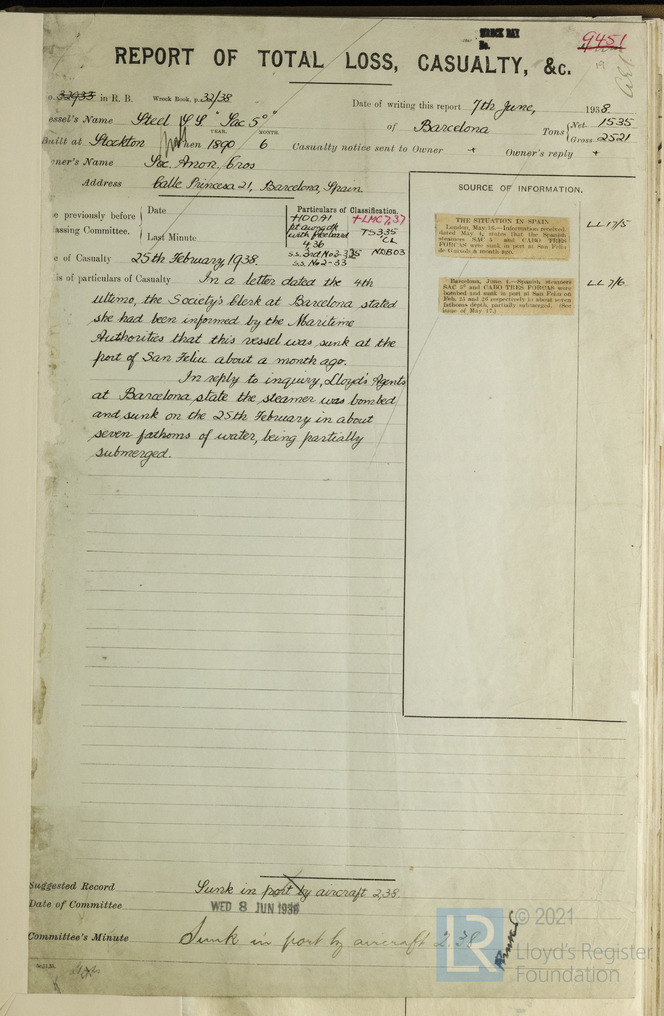 WRECK DAY
No.
9451
REPORT OF TOTAL LOSS, CASUALTY, &c.
o. 32933 in R. B. Wreck Book, p. 32/38
Date of writing this report 7th June, 1938.
essel's Name Steel SS "Sac 5°" of Barcelona Tons Net 1535
Gross 2521
YEAR. MONTH.
Built at Stockton When 1890 6 Casualty notice sent to Owner + Owner's reply +
ner's Name Soc. Anon. Cros
Address Calle Princesa 21, Barcelona, Spain
e previously before
assing Committee.
Date
Last Minute
Particulars of Classification.
+100A1 +LMC 7,37
with freeboard TS 3.35
4,36 CL
s.s. No 2-33 NDB 03
e of Casualty 25th February, 1938.
is of particulars of Casualty In a letter dated the 4th
ultimo, the Society's Clerk at Barcelona stated
she had been informed by the Maritime
Authorities that this vessel was sunk at the
port of San Feliu about a month ago.
In reply to inquiry, Lloyd's Agents
at Barcelona state the steamer was bombed
and sunk on the 25th February in about
seven fathoms of water, being partially
submerged.
SOURCE OF INFORMATION.
THE SITUATION IN SPAIN
London, May 16.—Information received,
dated May 4, states that the Spanish
steamers SAC 5° and CABO TRES
FORCAS were sunk in port at San Feliu
de Guixols a month ago.
LL 17/5
Barcelona, June 4.—Spanish steamers
SAC 5° and CABO TRES FORCAS were
bombed and sunk in port at San Feliu on
Feb. 25 and 28 respectively in about seven
fathoms depth, partially submerged. (See
issue of May 17.)
LL 7/6.
Suggested Record Sunk in port by aircraft 2,38.
Date of Committee WED 8 JUN 1938
Committee's Minute Sunk in port by aircraft 2.38
© 2021
LR
Lloyd's Register
Foundation